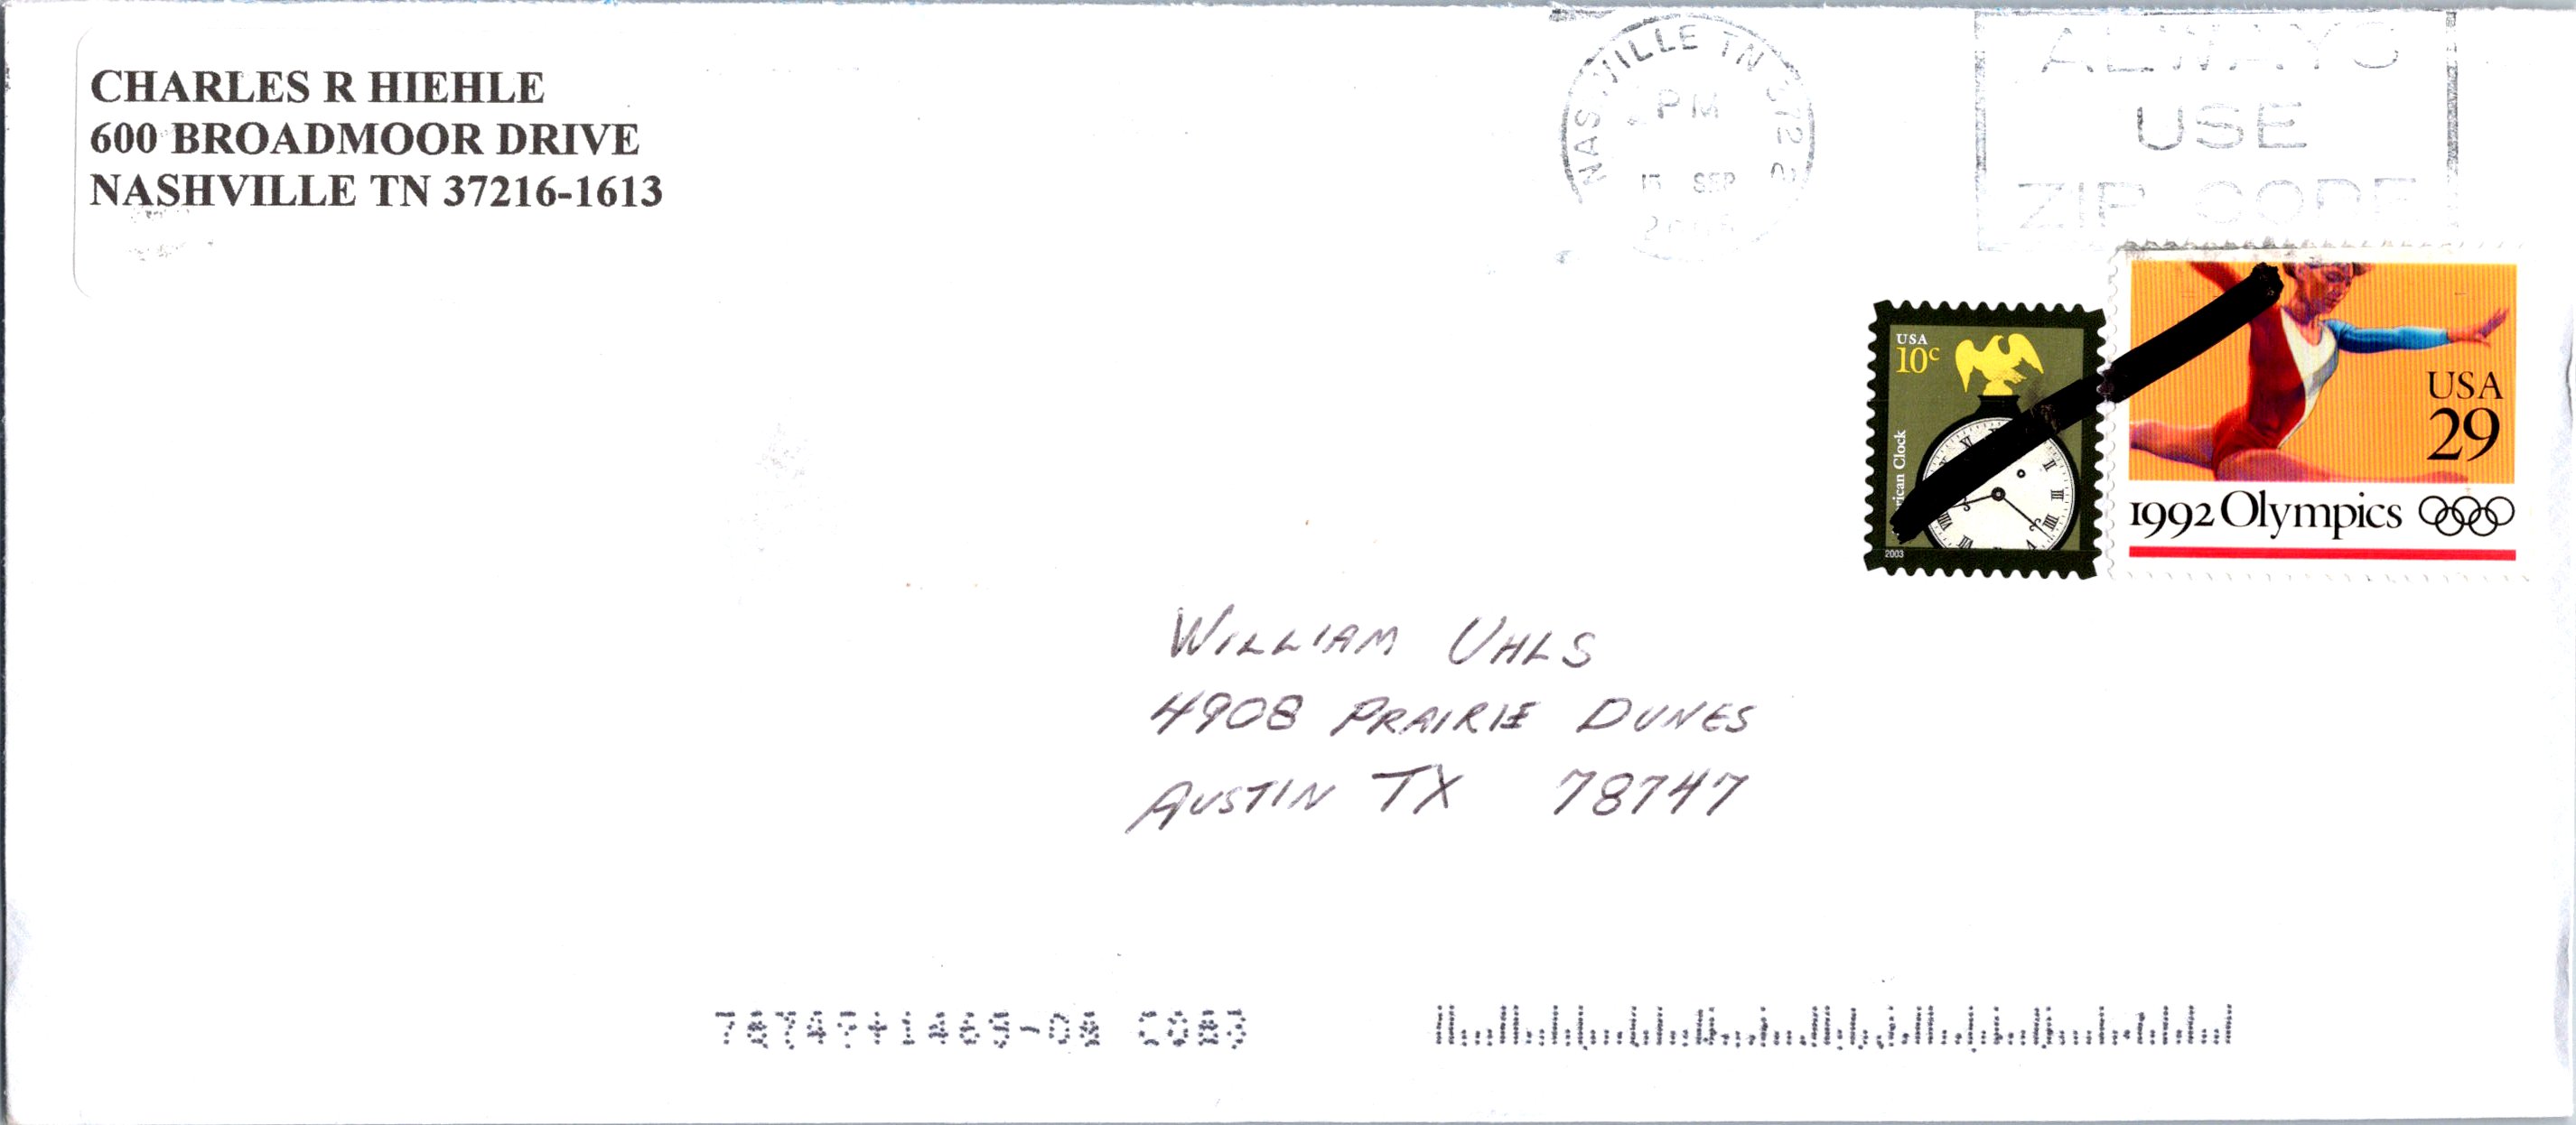 CHARLES R HIEHLE
600 BROADMOOR DRIVE
NASHVILLE TN 37216-1613
NASHVILLE TN 372
PM
SEP
ALWAYS
USE
ZIP CODE
USA
10c
Clock
2003
USA
29
1992 Olympics
WILLIAM UHLS
4908 PRAIRIE DUNES
AUSTIN TX 78747